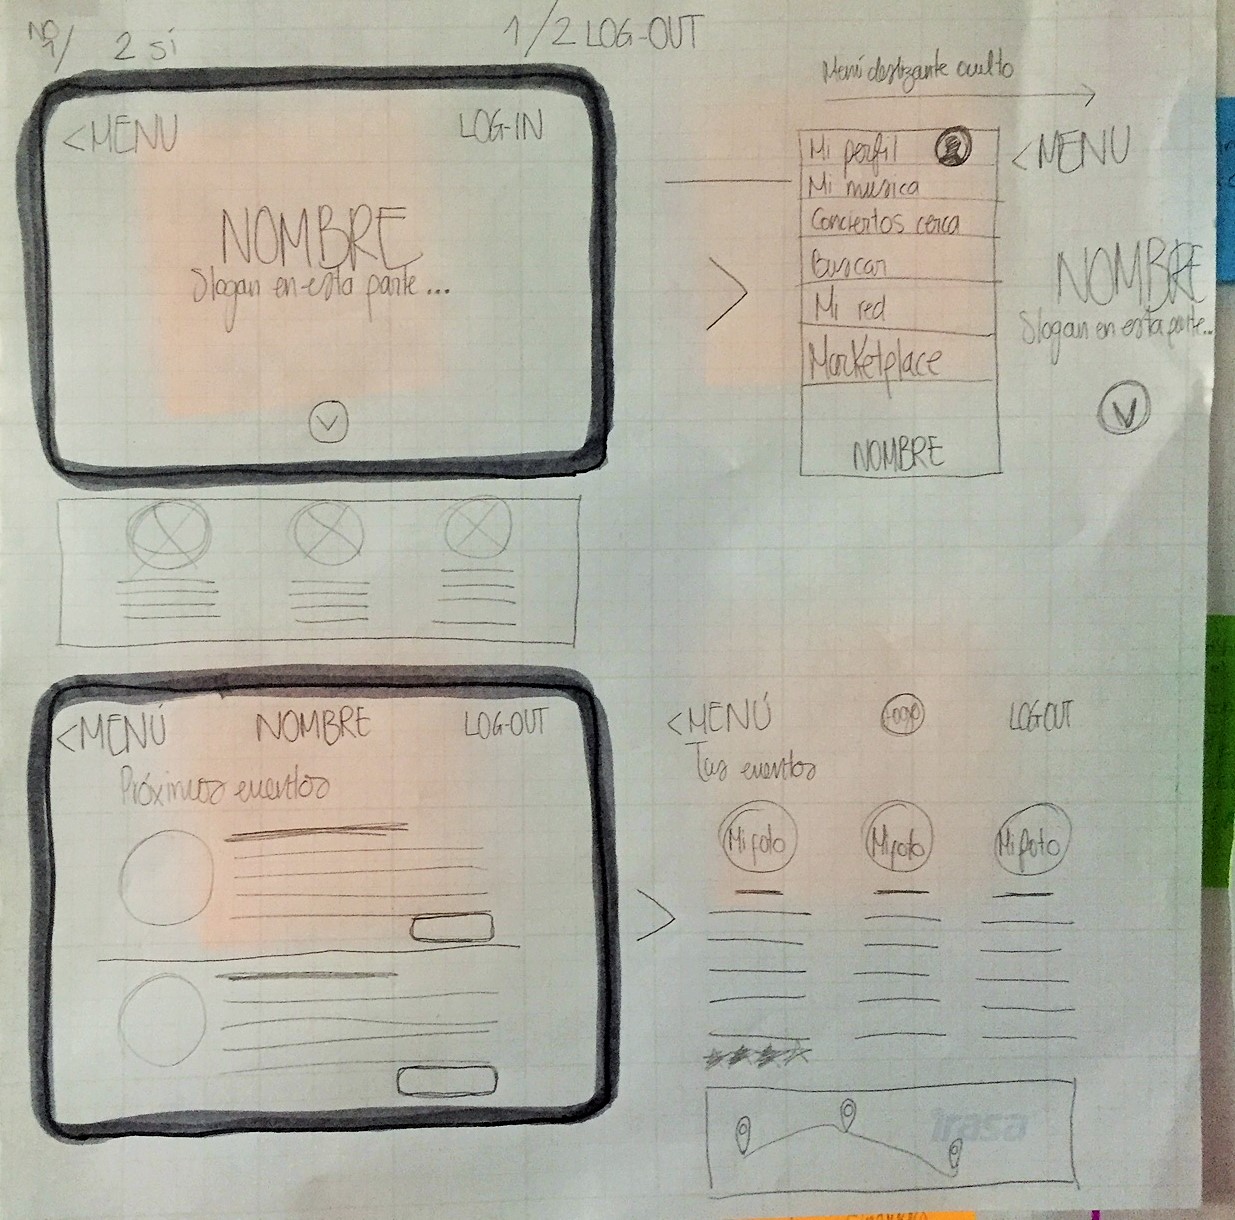 NO
1/ 2 sí
1/2 LOG-OUT
<MENU LOG-IN
NOMBRE
Slogan en esta parte...
Menú deslizante oculto
Mi perfil
Mi musica
Conciertos cerca
Buscar
Mi red
Marketplace
NOMBRE
<MENU
NOMBRE
Slogan en esta parte...
<MENÚ NOMBRE LOG-OUT
Próximos eventos
<MENÚ Logo LOGOUT
Tus eventos
Mi foto Mi foto Mi foto
irasa